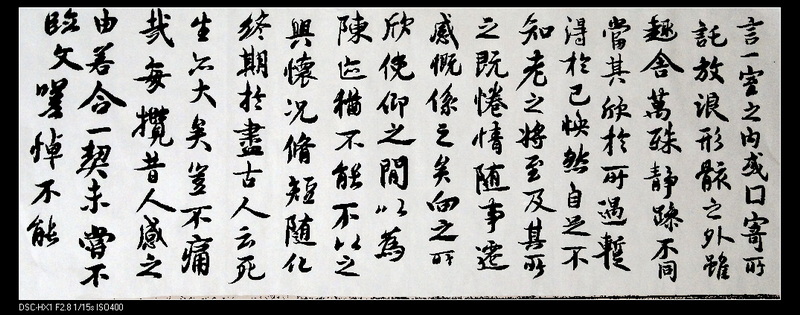 言一室之内或因寄所
託放浪形骸之外雖
趣舍萬殊靜躁不同
當其欣於所遇暫
得於己怏然自足不
知老之將至及其所
之既惓情随事遷
感慨係之矣向之所
欣俛仰之間以為
陳迹猶不能不以之
興懷況脩短随化
終期於盡古人云死
生亦大矣豈不痛
哉每攬昔人感之
由若合一契未嘗不
臨文嗟悼不能
DSC-HX1 F2.8 1/15s ISO400